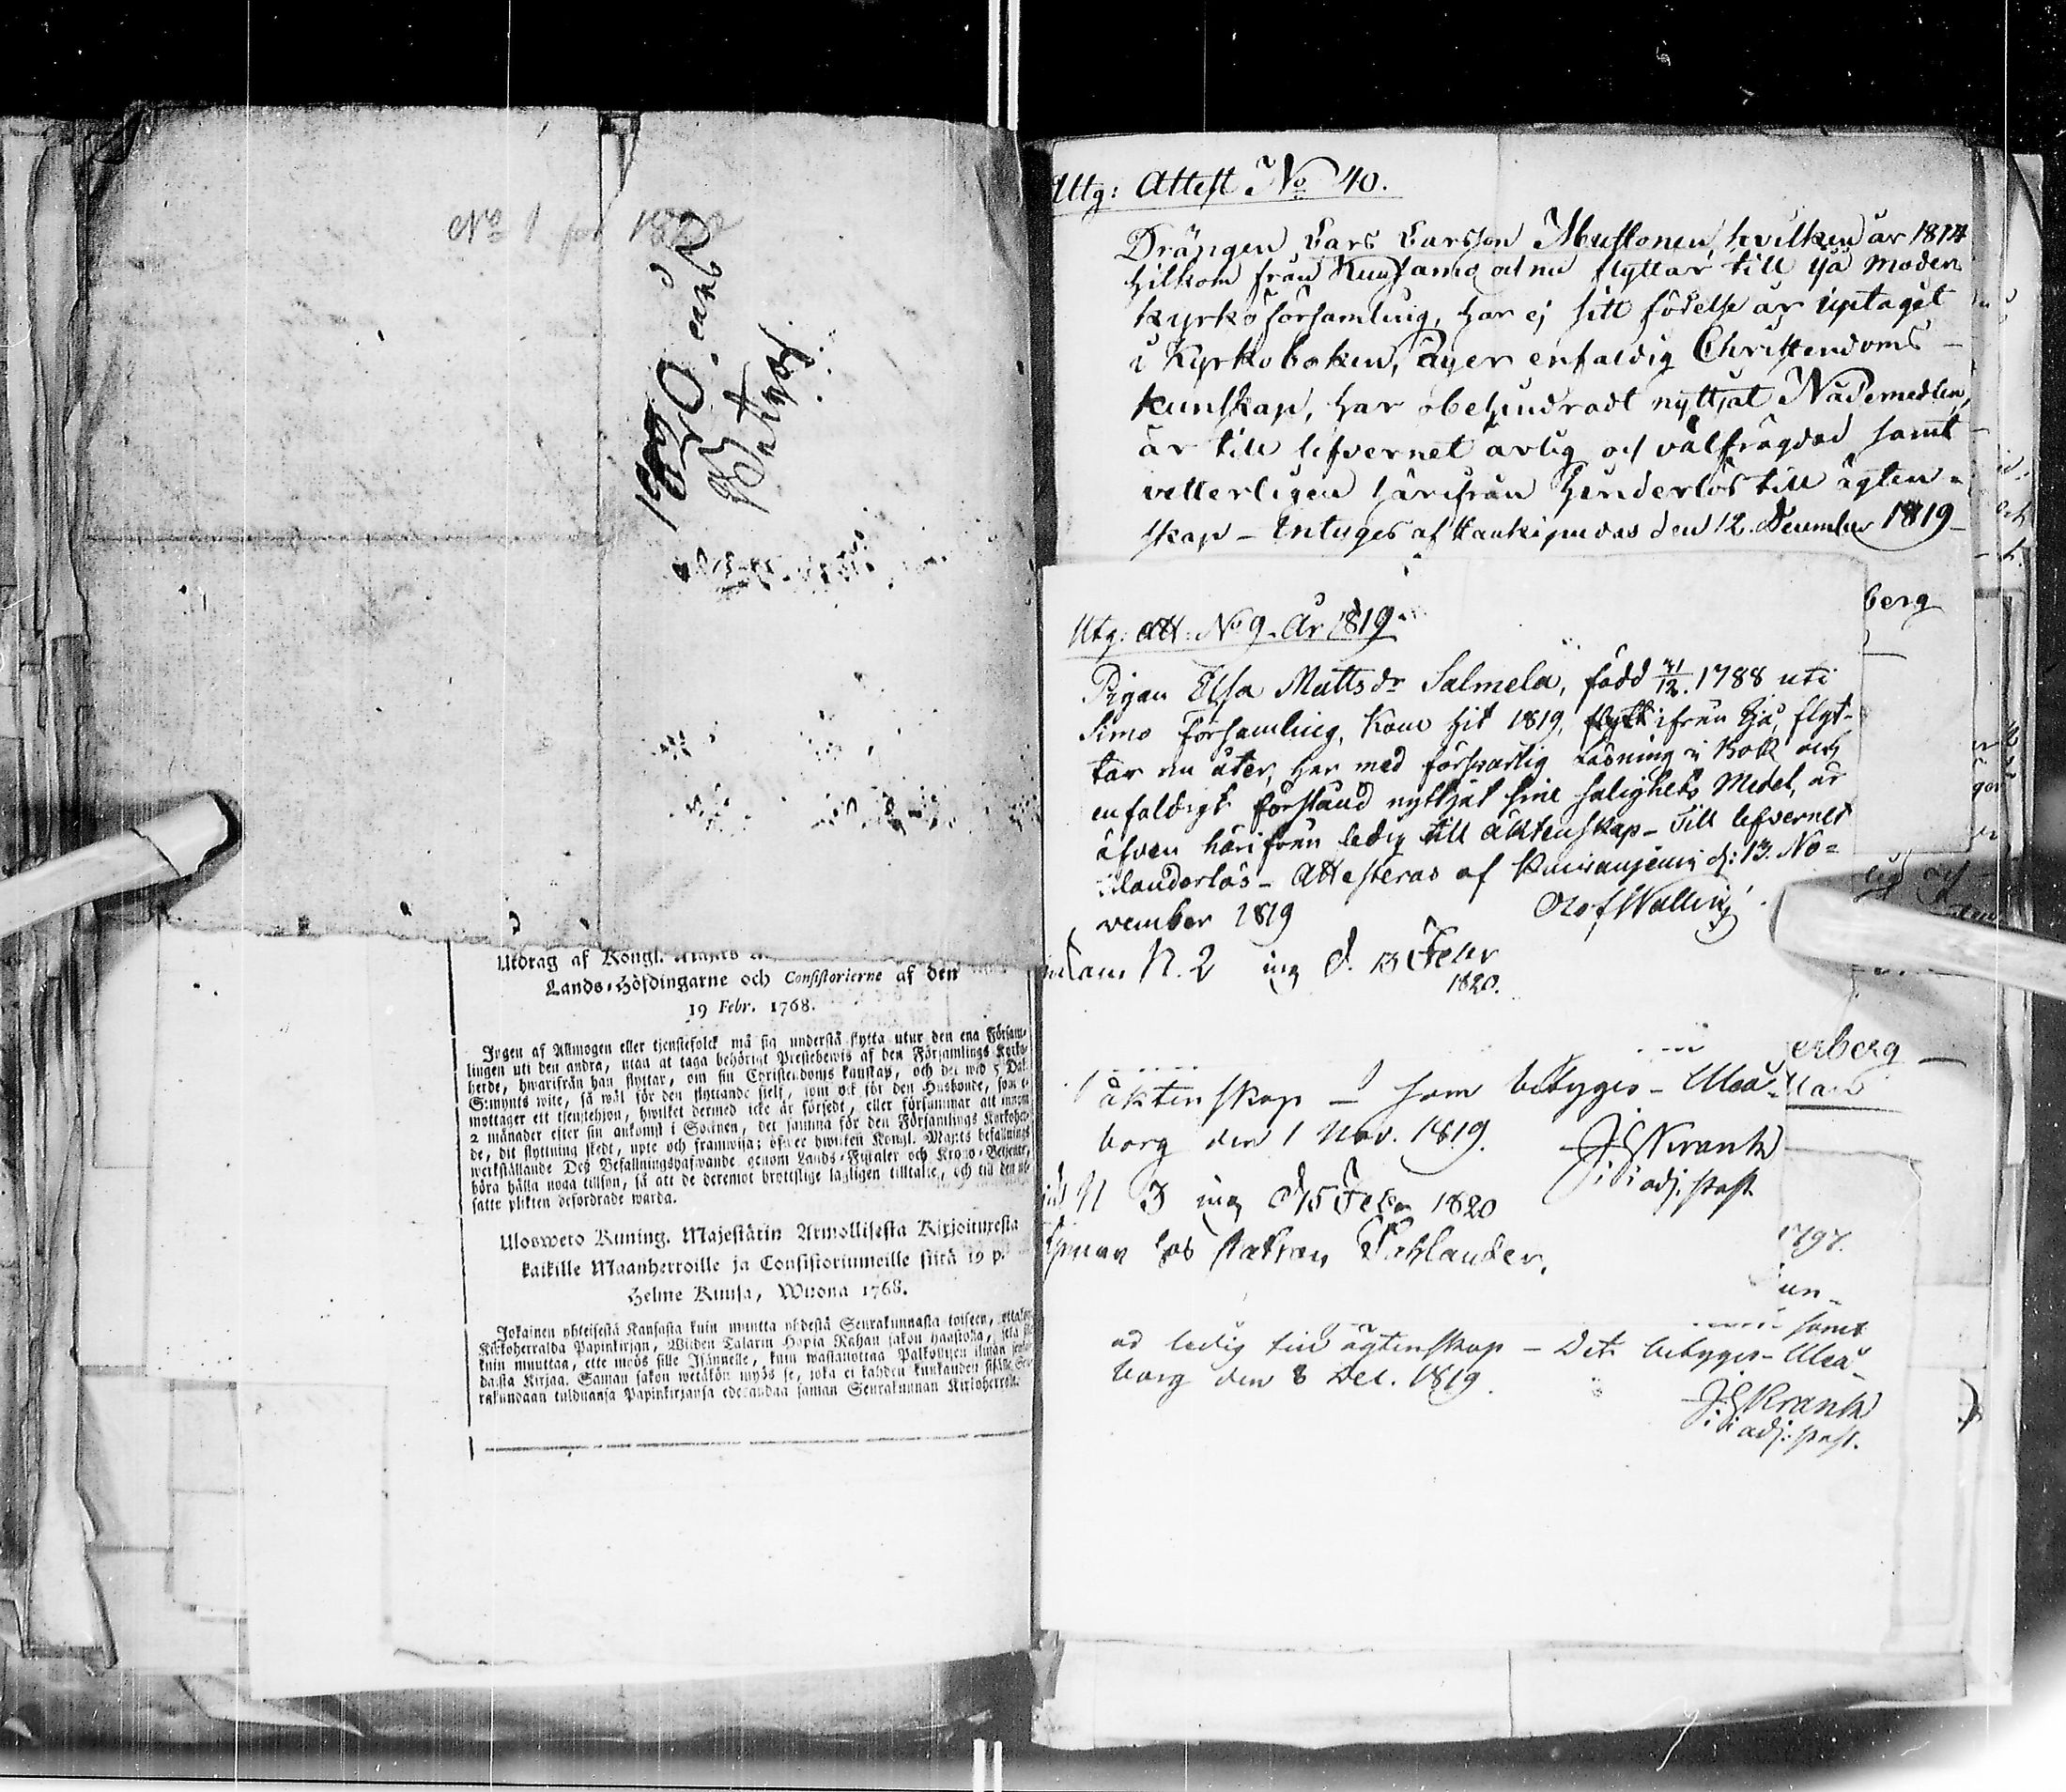 No 1 för 1820
1820 eenk
Betygs
Utdrag af Kongl. Majts
Lands-Höfdingarne och Consistorierne af den
19 Febr. 1768.
Ingen af Allmogen eller tjenstefolck må sig understå flytta utur den ena Försam-
lingen uti den andra, utan at taga behörigt Prestebewis af den Församlings Kyrko-
herde, hwarifrån han flyttar, om sin Christendoms kunskap, och det wid 5 Dal.
S:mynts wite, så wäl för den flyttande sjelf, som ock för den Husbonde, som e-
mottager ett tjenstehjon, hwilket dermed icke är försedt, eller försummar att innom
2 månader efter sin ankomst i Socknen, det samma för den Församlings Kyrkoher-
de, dit flyttning skedt, upte och framwisa; öfwer hwilken Kongl. Majts befallnings
werkställande Deß Befallningshafwande genom Lands-Fiscaler och Krono-Betjente,
böra hålla noga tillsyn, så att de deremot brottslige lagligen tilltalte, och till den ute-
satte plikten befordrade warda.
Ulosweto Kuning. Majestätin Armollisesta Kirjoituxesta
kaikille Maanherroille ja Consistoriumeille siitä 19 p.
Helme Kuusa, Wuona 1768.
Jokainen yhteisestä Kansasta kuin muutta yhdestä Seurakunnasta toiseen, ottakon
Kirkoherralda Papinkirjan, Wijden Talarin Hopia Rahan sakon haastolla, sekä se
kuin muuttaa, ette myös sille Isännelle, kuin wastanottaa Palkollisen ilman sen-
daista Kirjaa. Saman sakon wetäkön myös se, joka ei kahden kuukauden sisälle Seu-
rakundaan tulduansa Papinkirjansa edesandaa saman Seurakunnan Kirkoherralle.
Uttg: Attest No 40.
Drängen Lars Larsson Mustonen, hvilken år 1814
hitkom från Kuusamo och nu flyttar till Ijå moder
kyrko församling, har ej sitt födelse år uptaget
i Kyrkoboken, äger enfaldig Christendoms-
kunskap, har obehindradt nyttjat Nådemedlen,
är till lefvernet ärlig och välfrägdad samt
vetterligen härifrån hinderlös till ägten-
skap - Intygas af Haukipudas den 12. December 1819 -
berg
Utg: att: No 9. År 1819
Pigan Elsa Mattsdr Salmela, född 31/12. 1788 uti
Simo församling, kom hit 1819, ifrån Ijå, flyt-
tar nu åter, har med försvarlig Läsning i Bok och
enfaldigt förstånd nyttjat sine salighets Medel, är
äfven härifrån ledig till äktenskap - till lefvernet
klanderlös - Attesteras af Pudasjerwi d: 13. No-
vember 1819
Olof Wallin
N. 2 ing d. 13 Febr
1820.
erberg
äktenskap - som betyges - Uleå-
borg den 1 Nov. 1819.
J: E Krank
adj: past
N 3 ing d 15 Febr 1820
hos
1797.
un-
samt
ad ledig till ägtenskap - Det betyges - Uleå-
borg den 8 Dec. 1819.
J: E Krank
adj: past.